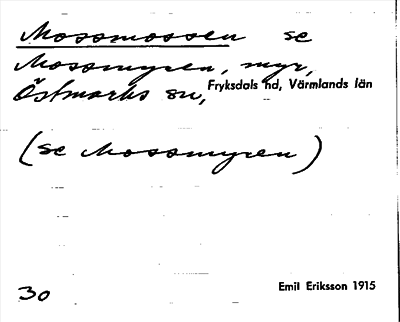 Mossmossen se
Mossmyren, myr,
Östmarks sn, Fryksdals hd, Värmlands län
(se Mossmyren)
30
Emil Eriksson 1915